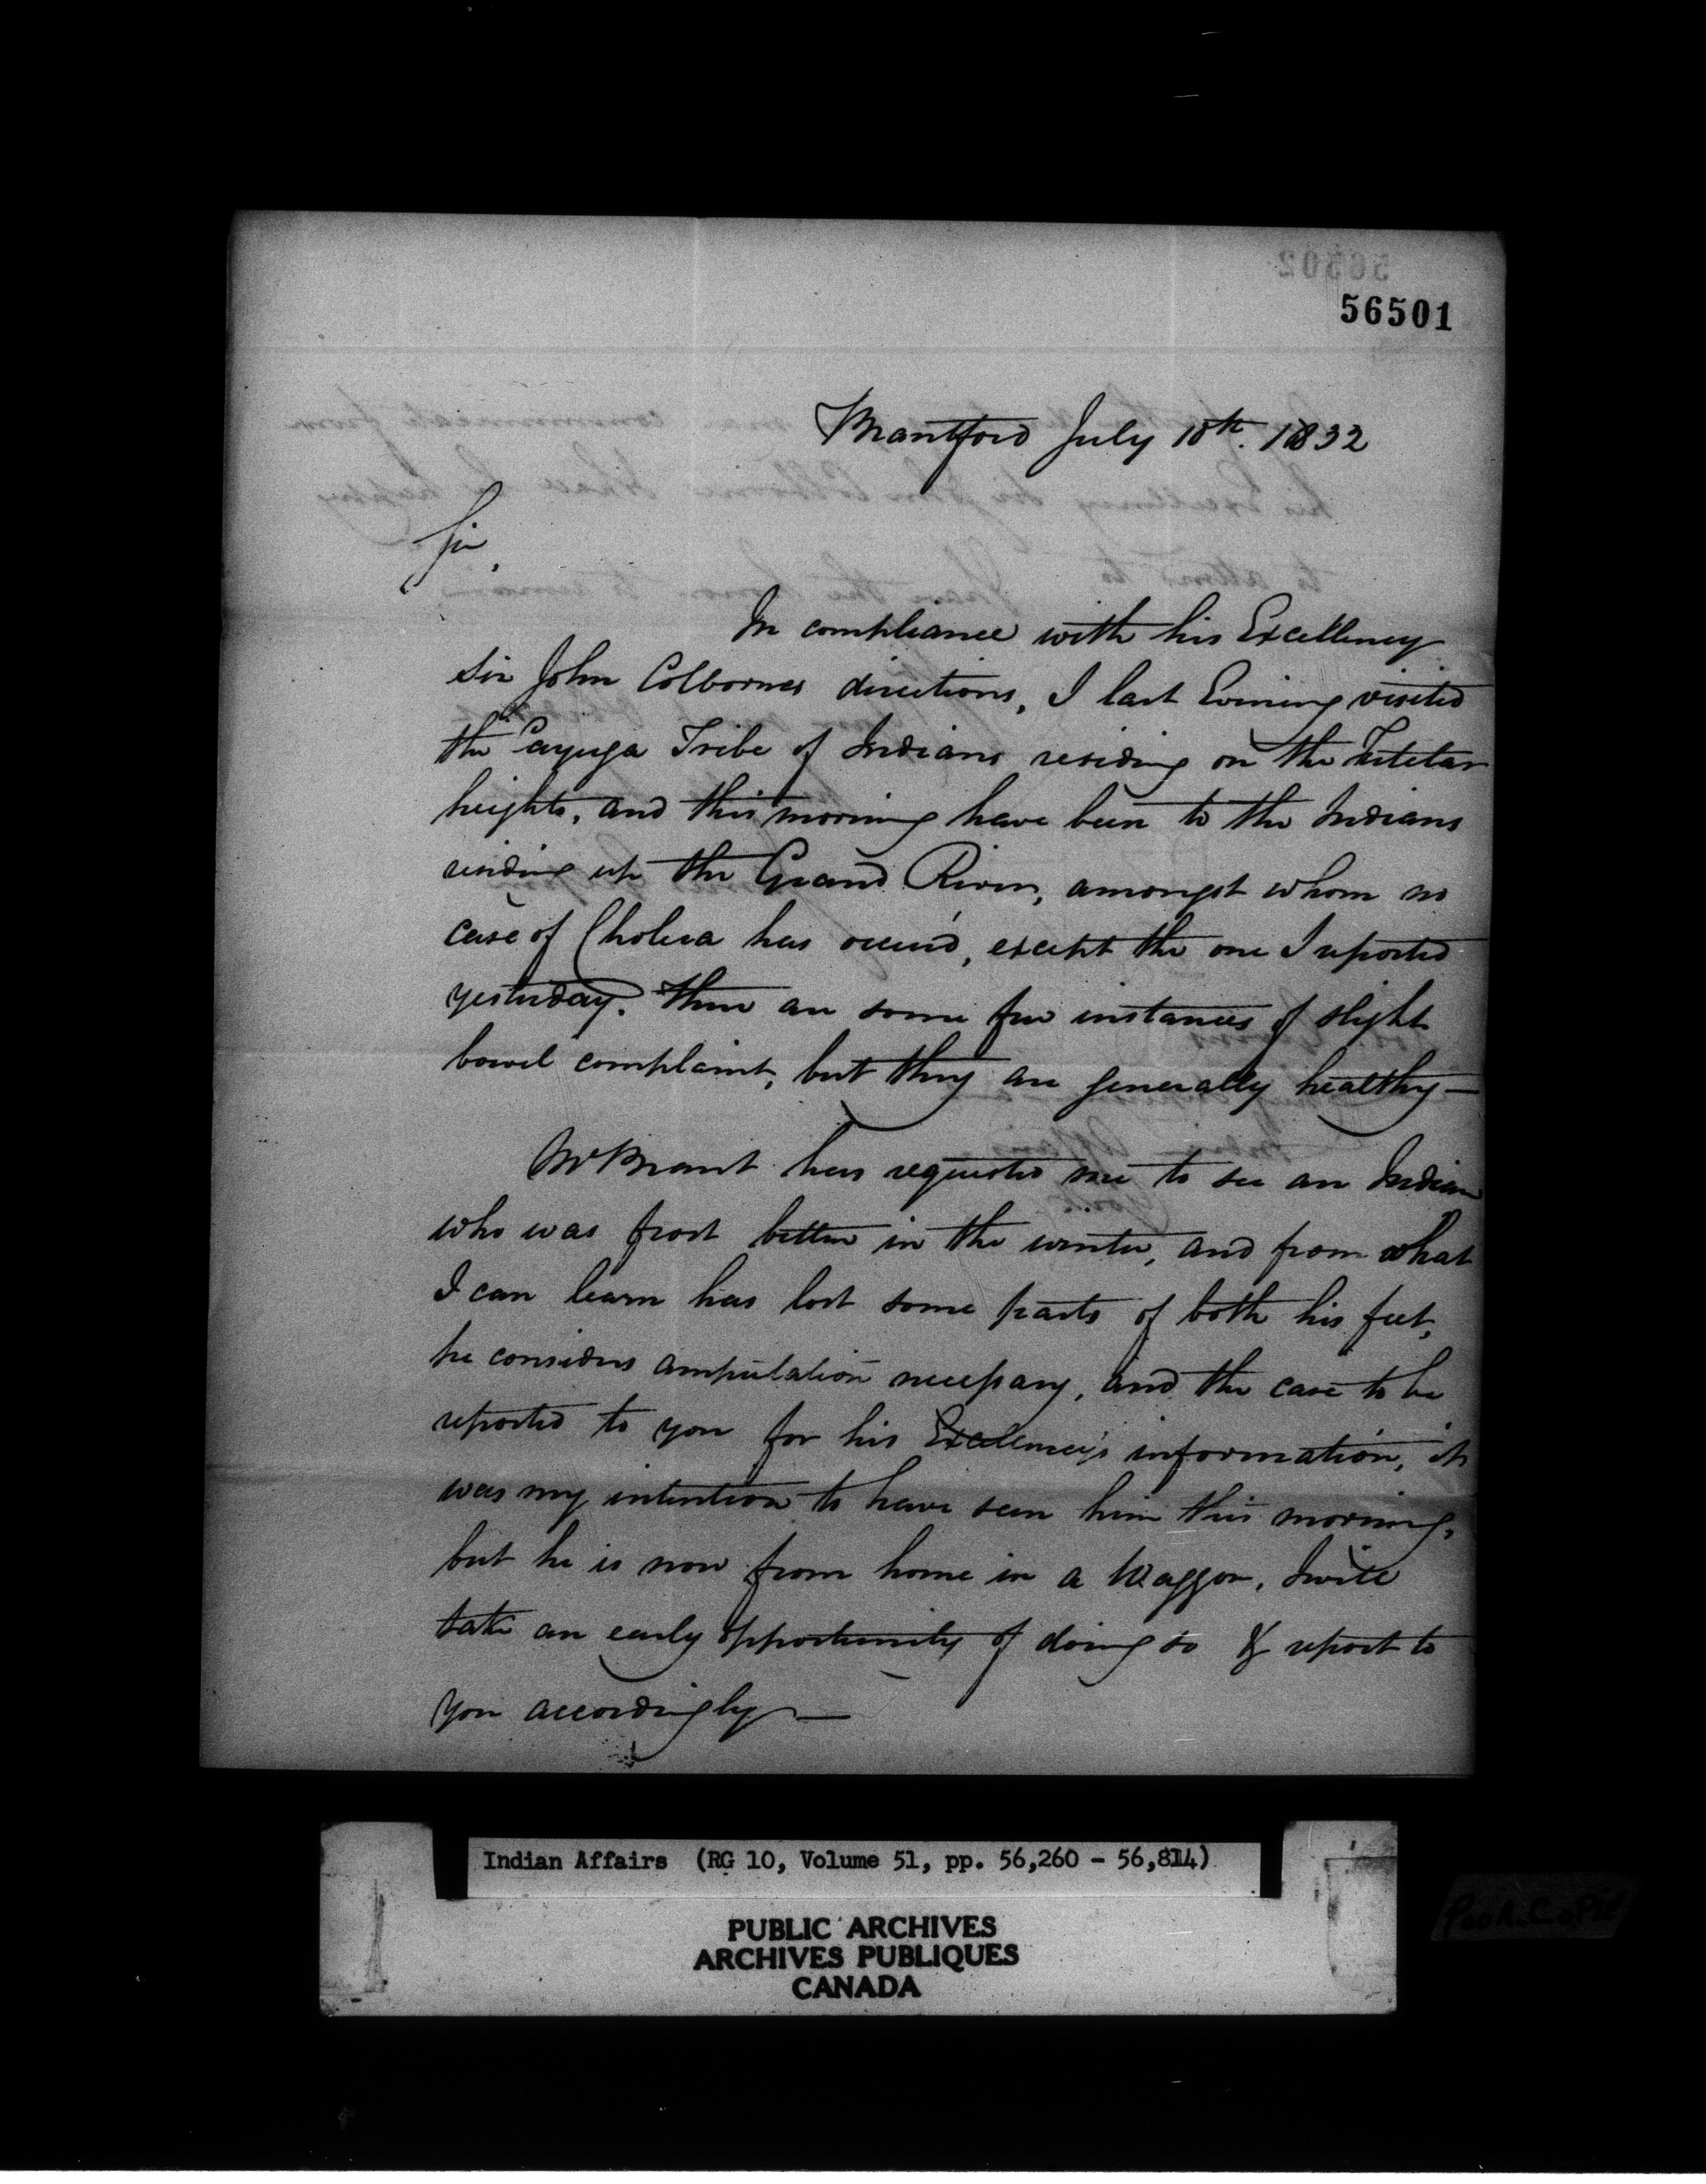 56502
56501
Brantford July 18th. 1832
Sir,
In compliance with his Excellency
Sir John Colbornes directions, I last Evening visited
the Cayuga Tribe of Indians residing on the Tutetar
heights, and this morning have been to the Indians
residing up the Grand River, amongst whom no
case of Cholera has occur'd, except the one I reported
yesterday. There are some few instances of slight
bowel complaint, but they are generally healthy —
Mr Brant has requested me to see an Indian
who was frost bitten in the winter, and from what
I can learn has lost some parts of both his feet,
he considers amputation necessary, and the case to be
reported to you for his Excellency's information, it
was my intention to have seen him this morning,
but he is now from home in a Waggon, I will
take an early opportunity of doing so & report to
you accordingly —
Indian Affairs (RG 10, Volume 51, pp. 56,260 - 56,814)
PUBLIC ARCHIVES
ARCHIVES PUBLIQUES
CANADA
POOR COPIE